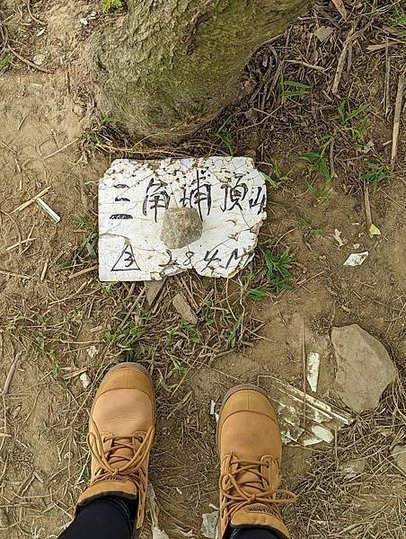 三角埔頂山
△ 284M